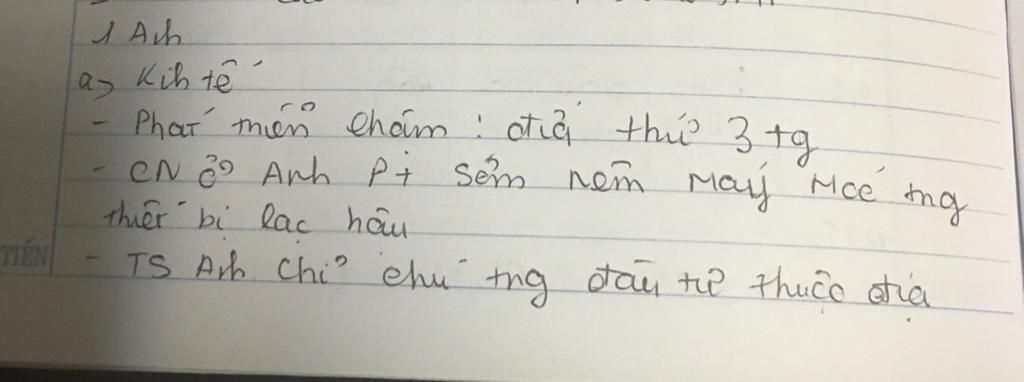 1 Anh
a) Kinh tế
- Phát triển chậm : đứ thứ 3 tg
- CN ở Anh pt sớm nên máy móc tng
thiết bị lạc hậu
TIẾN
- TS Anh chỉ chú tng đầu tư thuộc địa